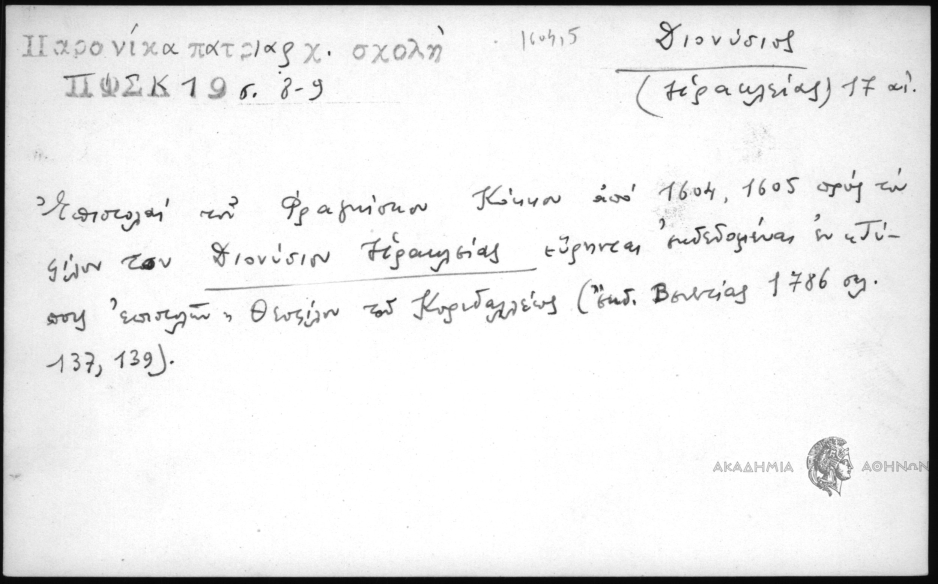 Παρονίκα πατριαρχ. σχολή
1604,5
Διονύσιος
ΠΦΣΚ 19 σ. 8-9
(Ἡρακλείας) 17 αἰ.
Ἐπιστολαί τοῦ Φραγκίσκου Κόκκου ἀπό 1604, 1605 πρός τόν
φίλον του Διονύσιον Ἡρακλείας εὕρηνται ἐκδεδομέναι ἐν «Τύ-
ποις ἐπιστολῶν» Θεοφίλου τοῦ Κορυδαλλέως (ἔκδ. Βενετίας 1786 σελ.
137, 139).
ΑΚΑΔΗΜΙΑ ΑΘΗΝΩΝ